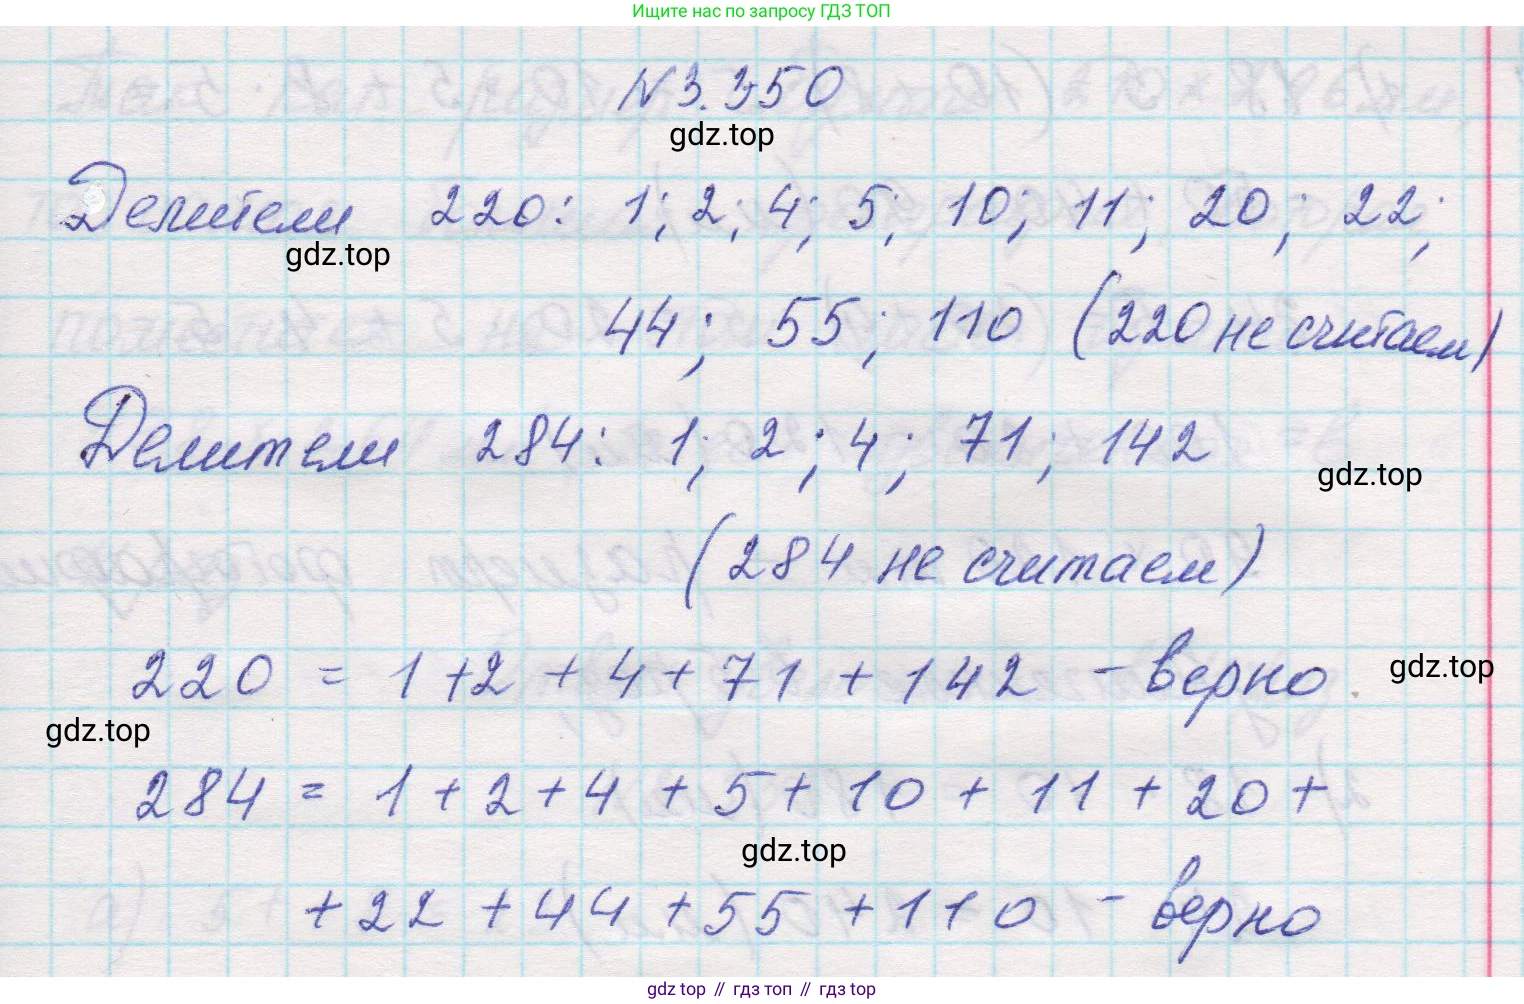 Ищите нас по запросу ГДЗ ТОП
№3.350
gdz.top
Делители 220: 1; 2; 4; 5; 10; 11; 20; 22;
gdz.top
44; 55; 110 (220 не считаем)
Делители 284: 1; 2; 4; 71; 142
gdz.top
(284 не считаем)
220 = 1 + 2 + 4 + 71 + 142 - верно
gdz.top
gdz.top
284 = 1 + 2 + 4 + 5 + 10 + 11 + 20 +
gdz.top
+ 22 + 44 + 55 + 110 - верно
gdz top // гдз топ // гдз top